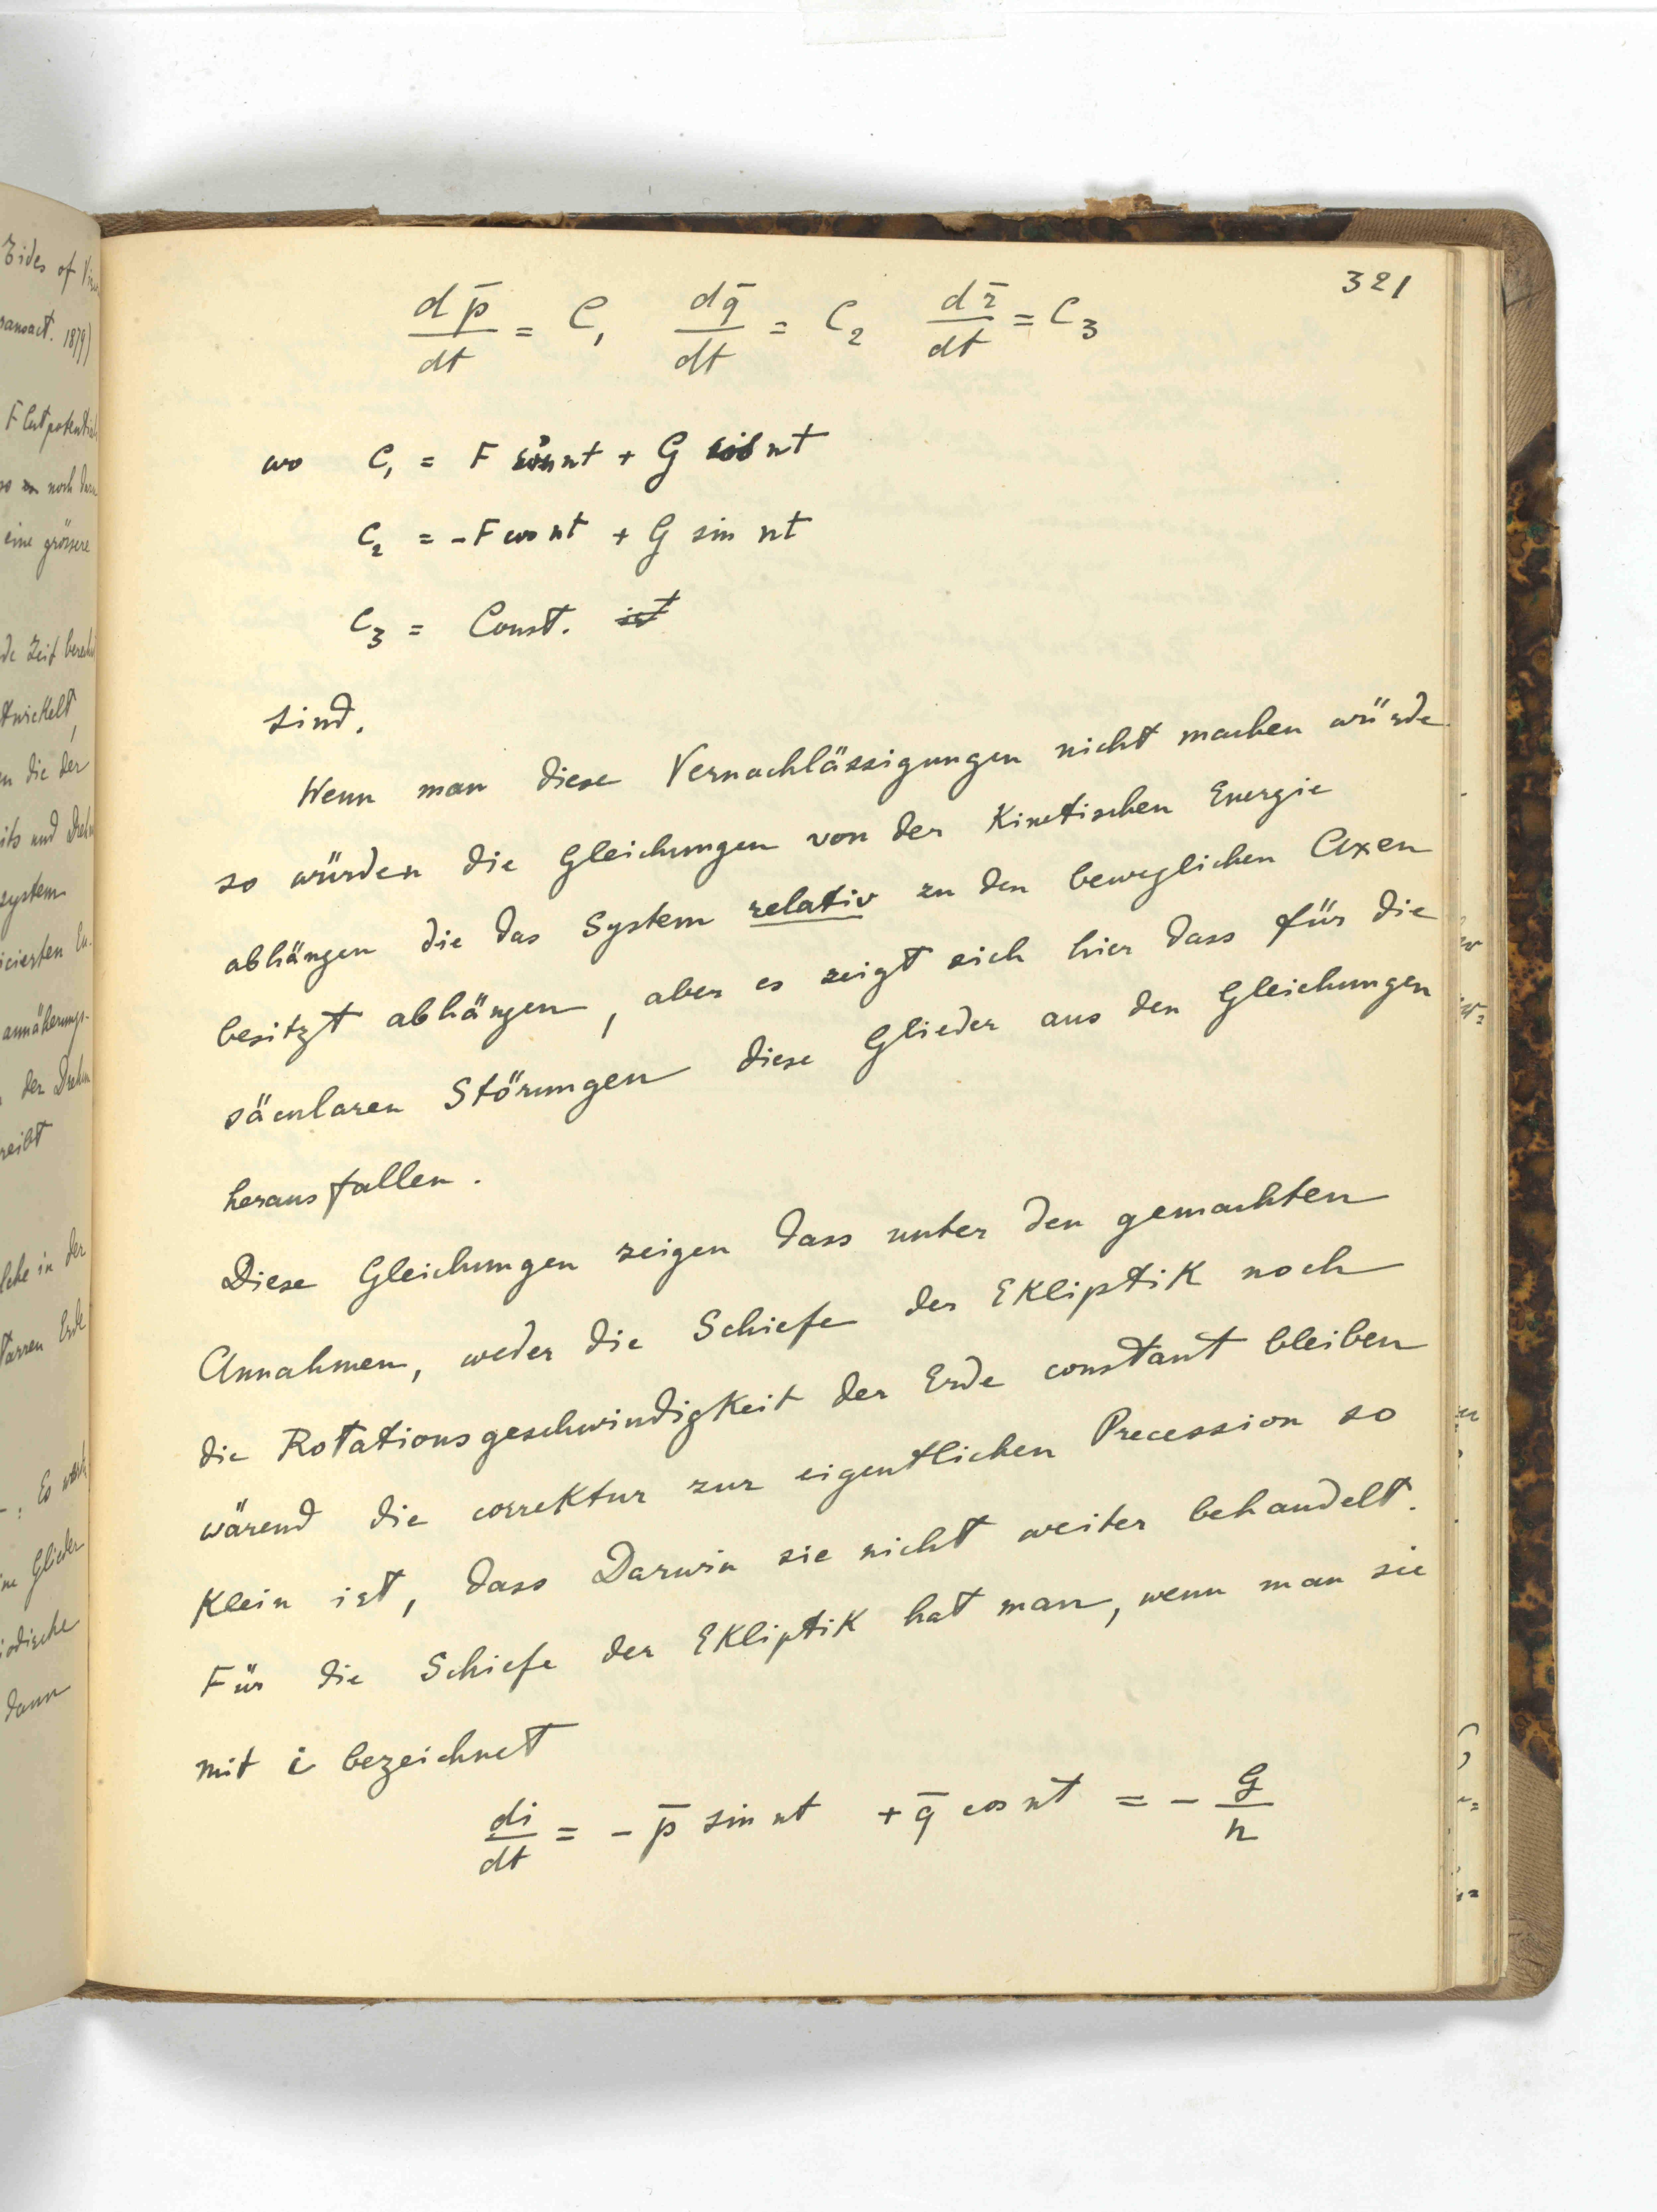 Tides of
Transact. 1879)
Flutpotential
so noch
eine grössere
de Zeit
twickelt,
en die der
its und
system
icierten
annäherungs-
der
reibt
lche in der
tarren Erde
Es
ne Glieder
iodische
dann
321
dp̄/dt = C₁   dq̄/dt = C₂   dr̄/dt = C₃
wo C₁ = F sin nt + G cos nt
C₂ = -F cos nt + G sin nt
C₃ = Const. ist
sind.
Wenn man diese Vernachlässigungen nicht machen würde
so würden die Gleichungen von der Kinetischen Energie
abhängen die das System relativ zu den beweglichen Axen
besitzt abhängen, aber es zeigt sich hier dass für die
säcularen Störungen diese Glieder aus den Gleichungen
herausfallen.
Diese Gleichungen zeigen dass unter den gemachten
Annahmen, weder die Schiefe der EKliptiK noch
die RotationsgeschwindigKeit der Erde constant bleiben
wärend die correKtur zur eigentlichen Precession so
Klein ist, dass Darwin sie nicht weiter behandelt.
Für die Schiefe der EKliptiK hat man, wenn man sie
mit i bezeichnet
di/dt = - p̄ sin nt + q̄ cos nt = - G/n